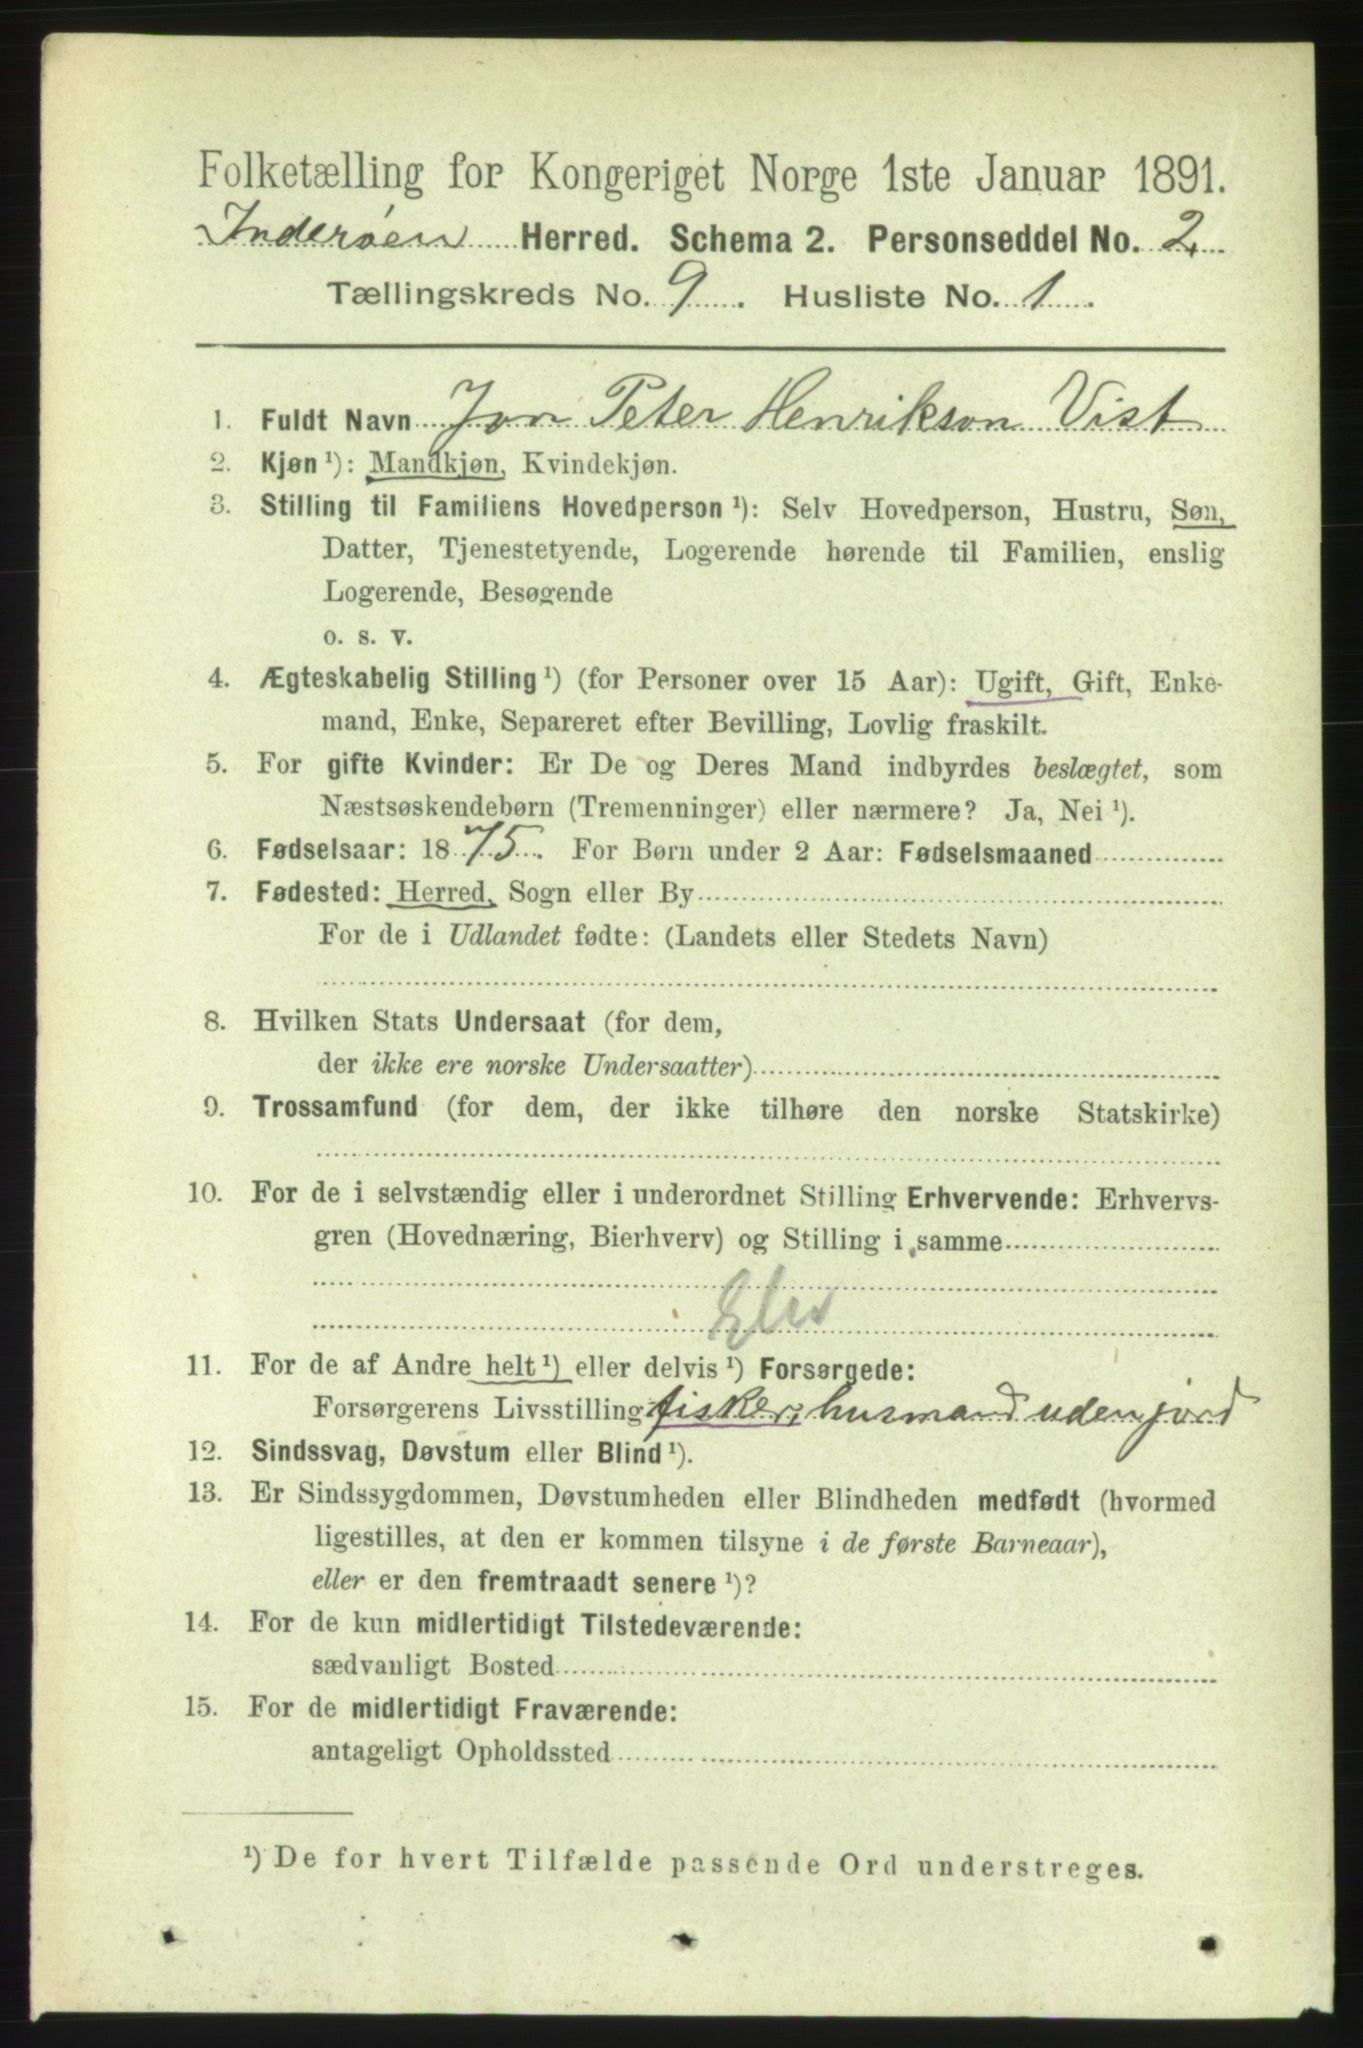 Folketælling for Kongeriget Norge 1ste Januar 1891.
Inderøen Herred. Schema 2. Personseddel No. 2
Tællingskreds No. 9. Husliste No. 1.
1. Fuldt Navn Jon Peter Henrikson Vist
2. Kjøn ¹): Mandkjøn, Kvindekjøn.
3. Stilling til Familiens Hovedperson ¹): Selv Hovedperson, Hustru, Søn,
Datter, Tjenestetyende, Logerende hørende til Familien, enslig
Logerende, Besøgende
o. s. v.
4. Ægteskabelig Stilling ¹) (for Personer over 15 Aar): Ugift, Gift, Enke-
mand, Enke, Separeret efter Bevilling, Lovlig fraskilt.
5. For gifte Kvinder: Er De og Deres Mand indbyrdes beslægtet, som
Næstsøskendebørn (Tremenninger) eller nærmere? Ja, Nei ¹).
6. Fødselsaar: 1875. For Børn under 2 Aar: Fødselsmaaned
7. Fødested: Herred, Sogn eller By
For de i Udlandet fødte: (Landets eller Stedets Navn)
8. Hvilken Stats Undersaat (for dem,
der ikke ere norske Undersaatter)
9. Trossamfund (for dem, der ikke tilhøre den norske Statskirke)
10. For de i selvstændig eller i underordnet Stilling Erhvervende: Erhvervs-
gren (Hovednæring, Bierhverv) og Stilling i samme
Elev
11. For de af Andre helt ¹) eller delvis ¹) Forsørgede:
Forsørgerens Livsstilling fisker, husmand uden jord
12. Sindssvag, Døvstum eller Blind ¹).
13. Er Sindssygdommen, Døvstumheden eller Blindheden medfødt (hvormed
ligestilles, at den er kommen tilsyne i de første Barneaar),
eller er den fremtraadt senere ¹)?
14. For de kun midlertidigt Tilstedeværende:
sædvanligt Bosted
15. For de midlertidigt Fraværende:
antageligt Opholdssted
¹) De for hvert Tilfælde passende Ord understreges.